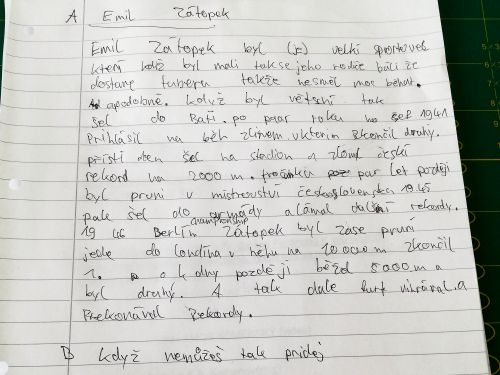 A Emil Zátopek
Emil Zátopek byl (je) velki sportovec
kteri když byl mali tak se jeho rodiče báli že
dostane tuberu takže nesměl moc běhat.
a podobně. když byl větši tak
šel do Bati. po par roku no šel 1941
Prihlásil na běh zlinem v kterim skončil druhy.
přisti den šel na stadion a zlomil česki
rekord na 2000 m. par let později
byl prvni v mistrovstvi československa 1945
pak šel do armády a lámal dalši rekordy.
championship
1946 Berlin Zátopek byl zase prvni
jede do londina v běhu na 10 000 m zkončil
1. a 4 dny později běžel 5000 m a
byl druhý. A tak dale furt vihrával. a
Prekonával Rekordy.
B když nemůžeš tak pridej